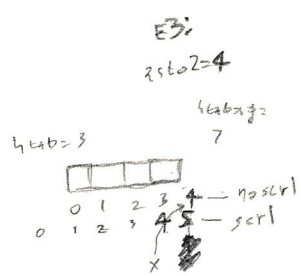 E3:
2sto2=4
7
htab=3
0 1 2 3 4 — noscrl
0 1 2 3 4 5 — scrl
X